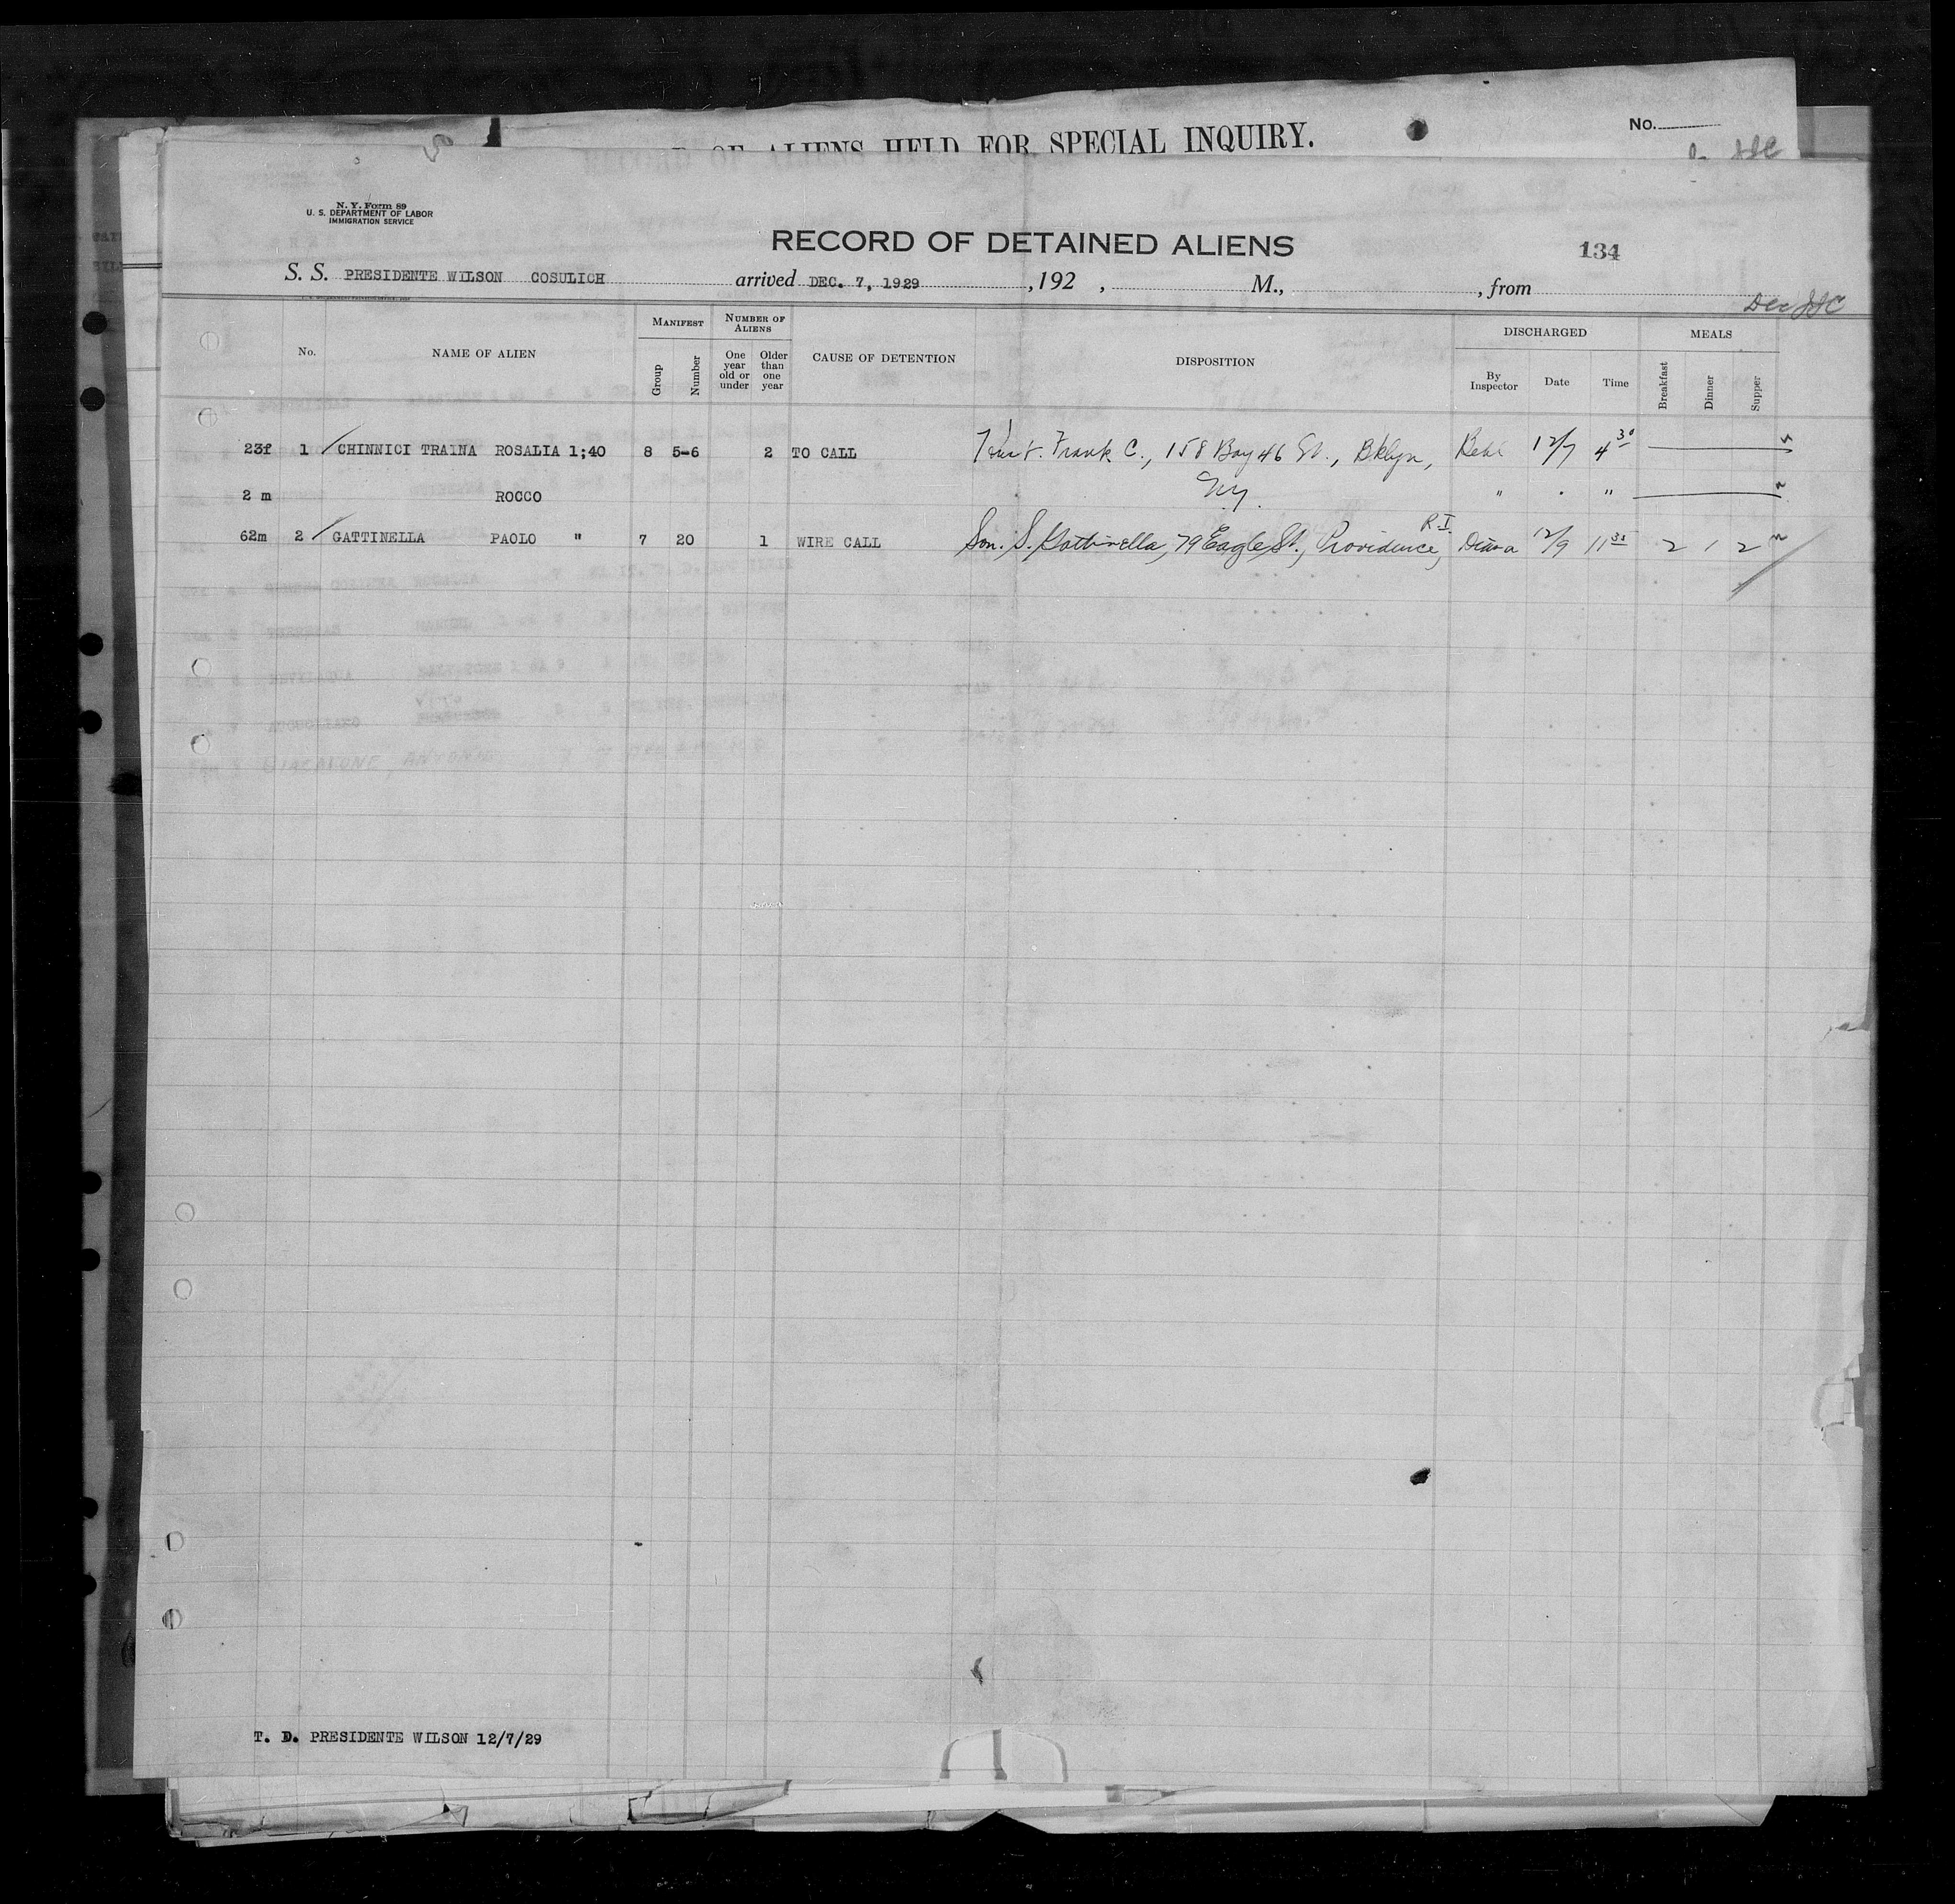 OF ALIENS HELD FOR SPECIAL INQUIRY.
No.
N. Y. Form 89
U. S. DEPARTMENT OF LABOR
IMMIGRATION SERVICE
RECORD OF DETAINED ALIENS
134
S. S. PRESIDENTE WILSON COSULICH arrived DEC. 7, 1929 , 192 , M., , from
No. NAME OF ALIEN MANIFEST Group Number NUMBER OF ALIENS One year old or under Older than one year CAUSE OF DETENTION DISPOSITION DISCHARGED By Inspector Date Time MEALS Breakfast Dinner Supper
23f 1 CHINNICI TRAINA ROSALIA 1;40 8 5-6 2 TO CALL Frank C., 158 Bay 46 St., Bklyn, 12/7 4 30
2 m ROCCO N.Y. " " "
R.I.
62m 2 GATTINELLA PAOLO " 7 20 1 WIRE CALL Son. S. Gattinella, 79 Eagle St., Providence, 12/9 11 35 2 1 2
T. D. PRESIDENTE WILSON 12/7/29